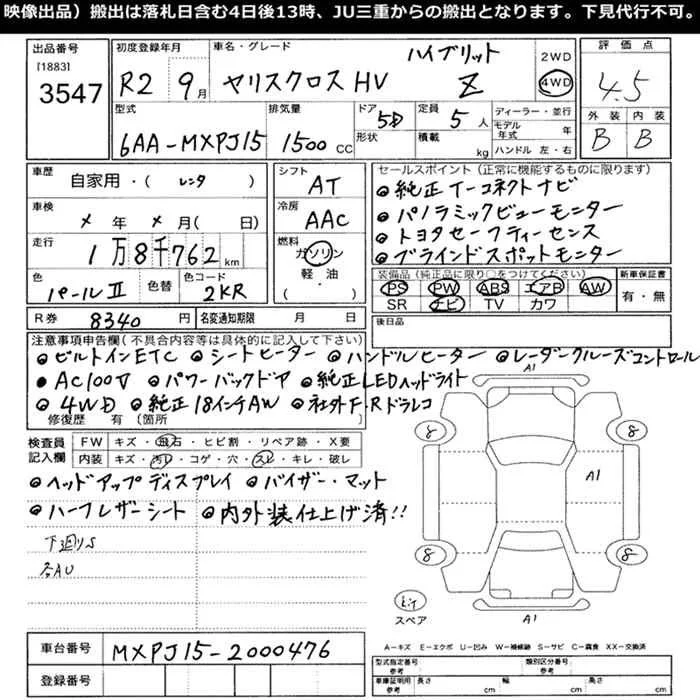 映像出品）搬出は落札日含む4日後13時、JU三重からの搬出となります。下見代行不可。
出品番号 初度登録年月 車名・グレード ハイブリット 2WD 評価点
[1883] 3547 R2 9月 ヤリスクロス HV Z 4WD 4.5
型式 排気量 ドア 5D 定員 5人 ディーラー・並行 外装 内装
6AA-MXPJ15 1500 CC 形状 積載 kg モデル年式 年 B B
ハンドル 左・右
車歴 自家用・( レンタ ) シフト AT セールスポイント（正常に機能するものに限ります）
●純正T-コネクトナビ
車検 × 年 × 月( 日) 冷房 AAC ●パノラミックビューモニター
●トヨタセーフティーセンス
走行 1万8千762km 燃料 ガソリン 軽・油 ・( ) ●ブラインドスポットモニター
色 パールⅡ 色替 色コード 2KR 装備品（純正品に限り○をつけてください） 新車保証書
PS PW ABS エアB AW 有・無
SR ナビ TV カワ
R券 8340円 名変通知期限 月 日 後日品
注意事項申告欄（不具合内容等は具体的に記入して下さい）
●ビルトインETC ●シートヒーター ●ハンドルヒーター ●レーダークルーズコントロール
●AC100V ●パワーバックドア ●純正LEDヘッドライト
●4WD ●純正18インチAW ●社外F.Rドラレコ
修復歴 有 〔箇所
検査員記入欄 FW キズ・飛石・ヒビ割・リペア跡・X要
内装 キズ・汚レ・コゲ・穴・スレ・キレ・破レ
●ヘッドアップディスプレイ ●バイザー・マット
●ハーフレザーシート ●内外装仕上げ済!!
下廻りS
各AU
A1
8 8
A1
8 8
スペア A1
A-キズ E-エクボ U-凹み W-補修跡 S-サビ C-腐食 XX-交換済
車台番号 MXPJ15-2000476
型式指定番号 参考 類別区分番号 参考
登録番号 車庫証明用 参考 長さ cm 幅 cm 高さ cm